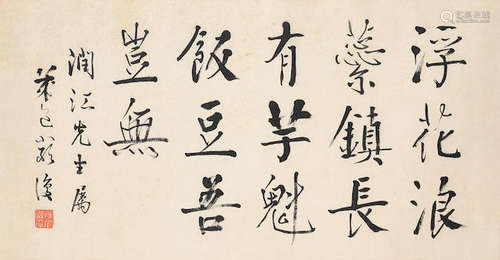 浮花浪
蘂鎮長
有芋魁
飯豆吾
豈無
潤江先生属